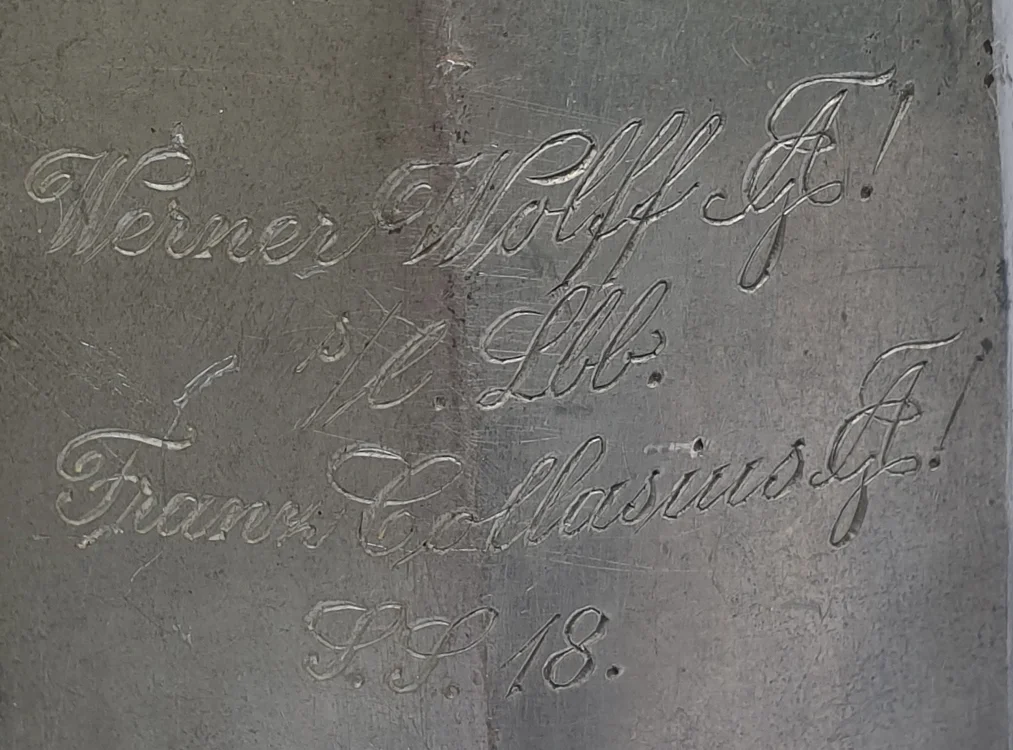 Werner Wolff !
s/l. Lbb.
Franz Collasius !
S.S. 18.